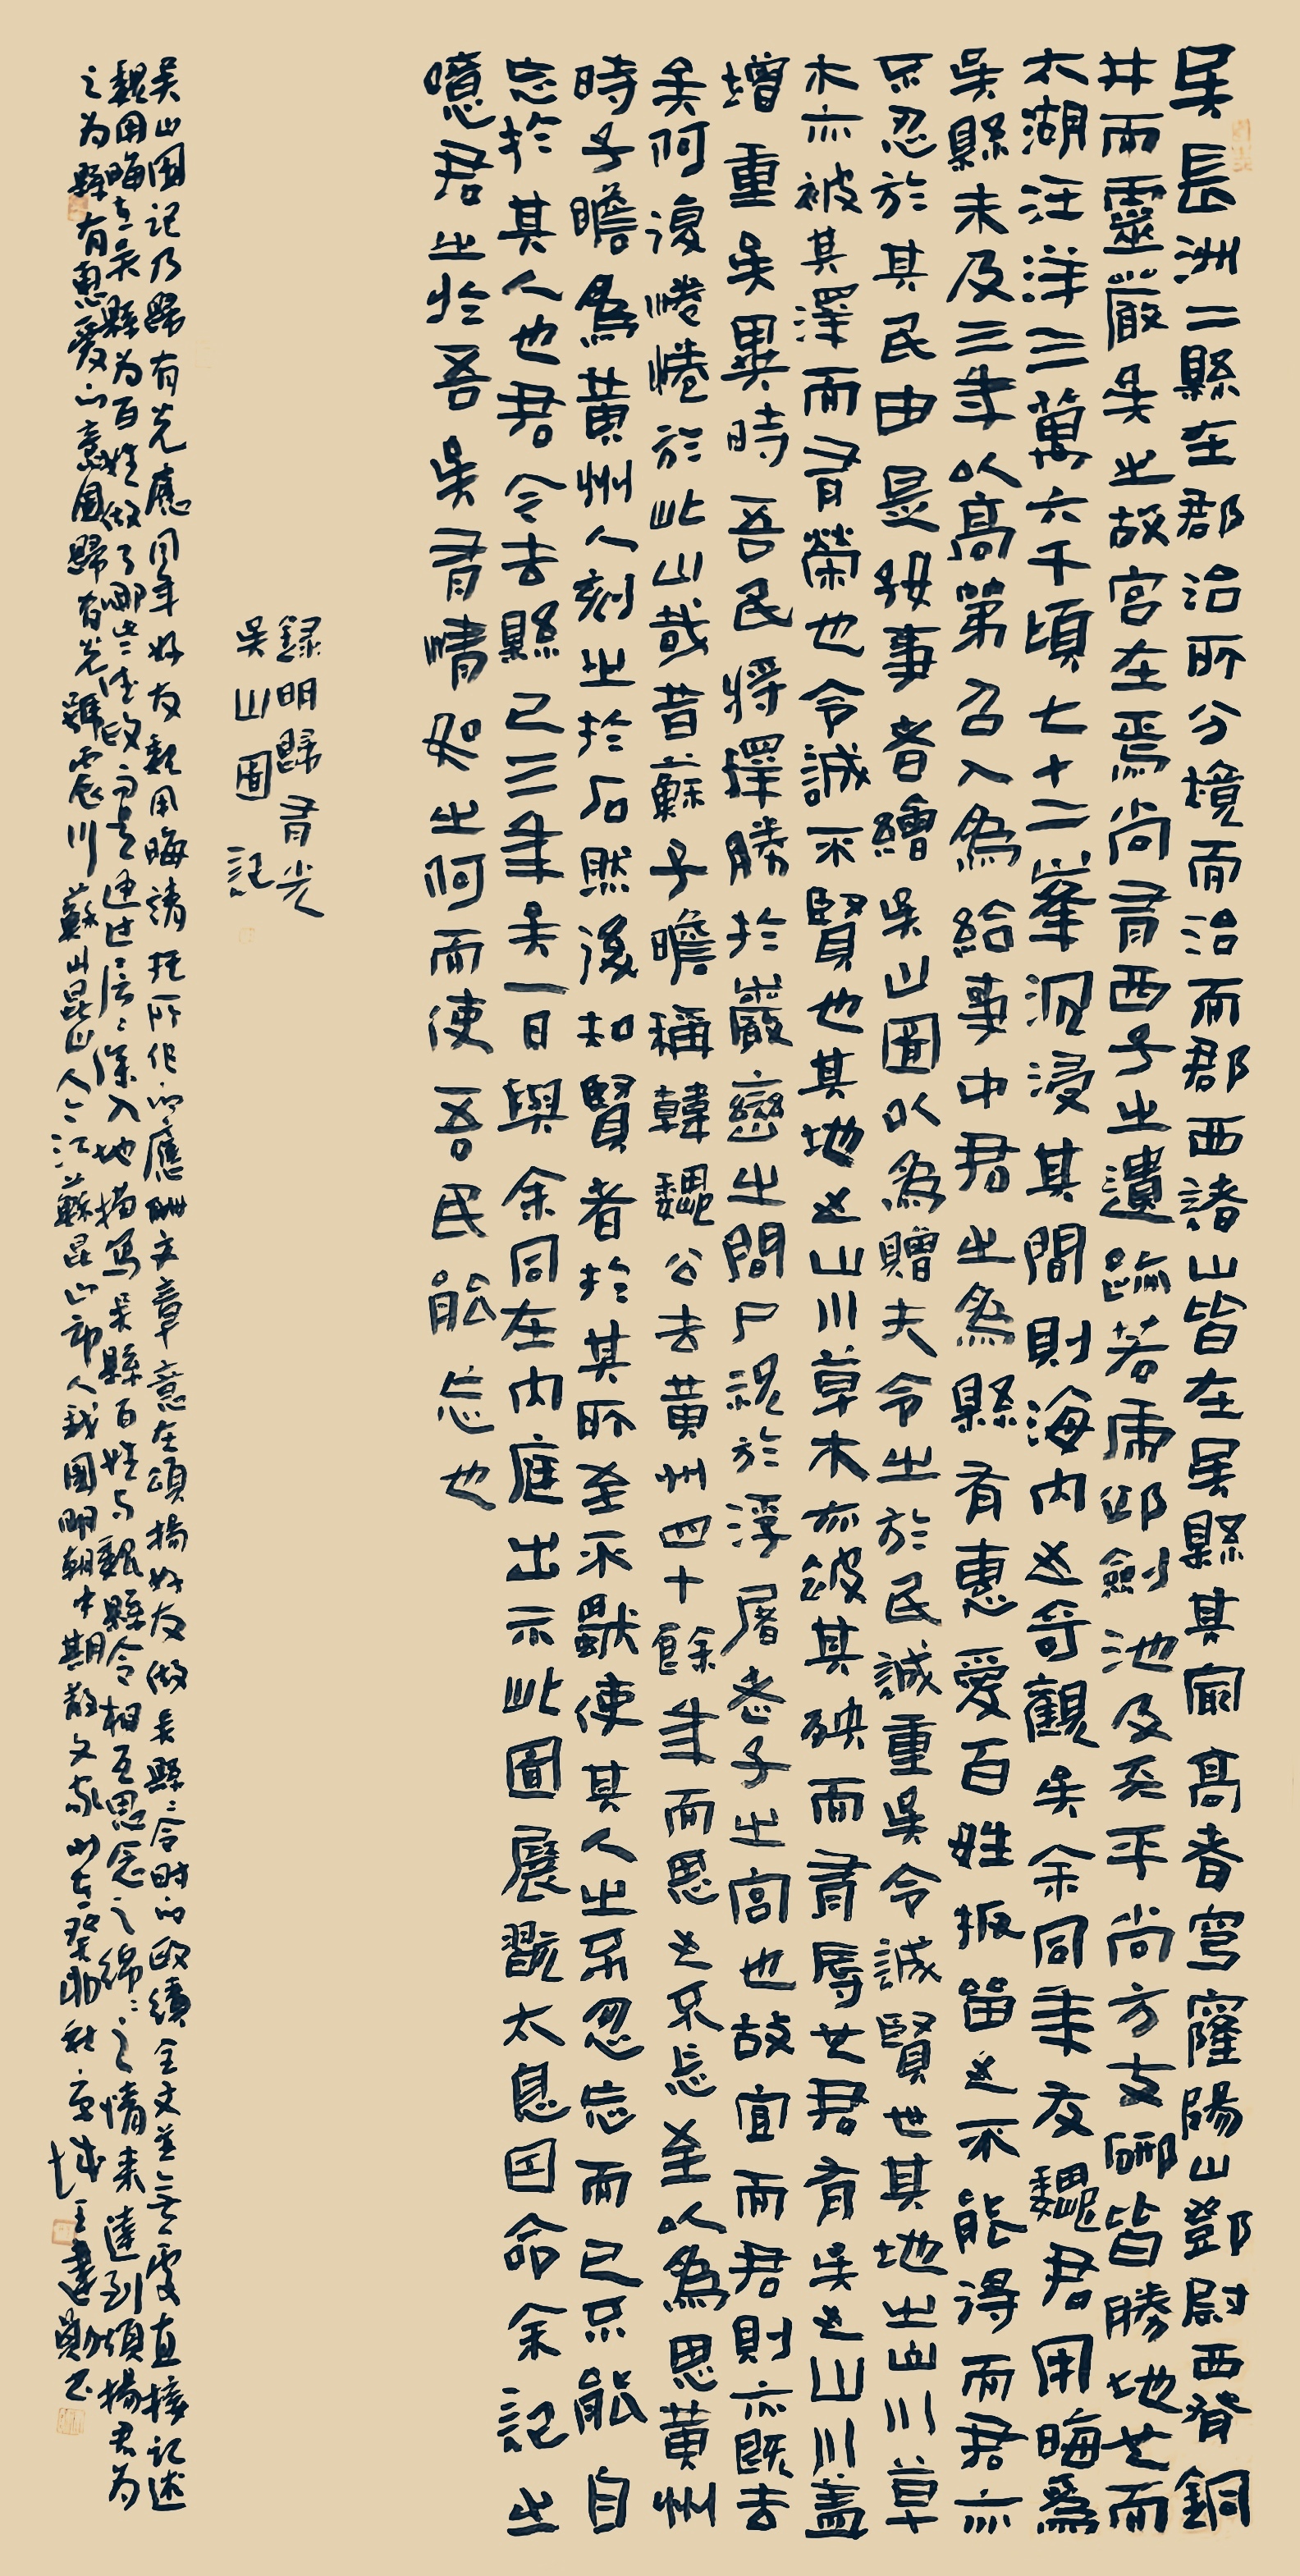 吳長洲二縣在郡治所分境而治而郡西諸山皆在吳縣其最高者穹窿陽山鄧尉西脊銅
井而靈巖吳之故宮在焉尚有西子之遺跡若虎邱劍池及天平尚方支硎皆勝地也而
太湖汪洋三萬六千頃七十二峯沉浸其間則海內之奇觀矣余同年友魏君用晦為
吳縣未及三年以高第召入為給事中君之為縣有惠愛百姓扳留之不能得而君亦
不忍於其民由是好事者繪吳山圖以為贈夫令之於民誠重矣令誠賢也其地之山川草
木亦被其澤而有榮也令誠不賢也其地之山川草木亦被其殃而有辱也君有吳之山川蓋
增重矣異時吾民將擇勝於巖巒之間尸祝於浮屠老子之宮也故宜而君則亦既去
矣何復惓惓於此山哉昔蘇子瞻稱韓魏公去黃州四十餘年而思之不忘至以為思黃州
時子瞻為黃州人刻之於石然後知賢者於其所至不獸使其人之不忍忘而已不能自
忘於其人也君今去縣已三年矣一日與余同在內庭出示此圖展翫太息因命余記之
噫君之於吾吳有情如之何而使吾民能忘也
錄明歸有光
吳山圖記
吳山圖記乃歸有光應同年好友魏用晦請托所作的應酬文章意在頌揚好友做吳縣縣令時的政績全文並無一處直接記述
魏用晦在吳縣為百姓做了哪些德政而是通過層層深入地描寫吳縣百姓與魏縣令相互思念之綿綿之情來達到頌揚君為
之為縣有惠愛的意圖歸有光號震川蘇山昆山人今江蘇昆山市人我國明朝中期散文家也歲在癸卯秋京城王建勳書